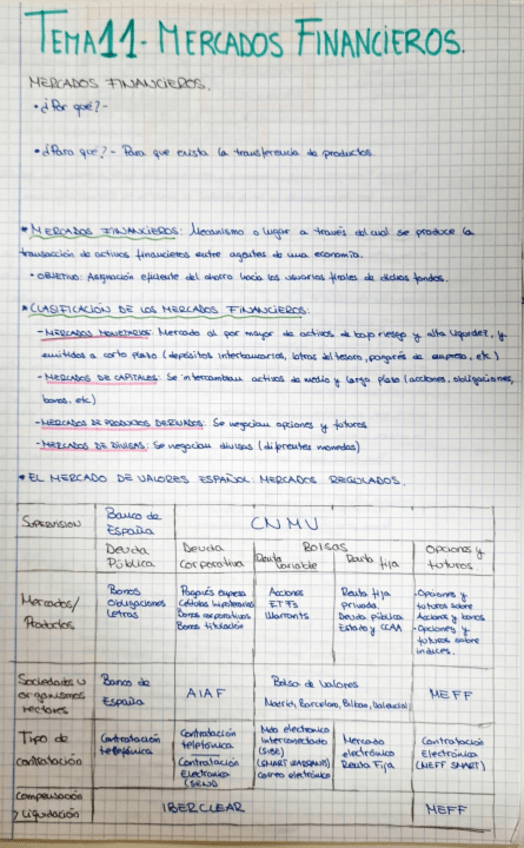 TEMA 11- MERCADOS FINANCIEROS.
MERCADOS FINANCIEROS.
• ¿Por qué? -
• ¿Para qué? - Para que exista la transferencia de productos.
* MERCADOS FINANCIEROS: Mecanismo o lugar a través del cual se produce la
transacción de activos financieros entre agentes de una economía.
• OBJETIVO: Asignación eficiente del ahorro hacia los usuarios finales de dichos fondos.
* CLASIFICACIÓN DE LOS MERCADOS FINANCIEROS:
- MERCADOS MONETARIOS: Mercado al por mayor de activos de bajo riesgo y alta liquidez, y
emitidos a corto plazo (depósitos interbancarios, letras del tesoro, pagarés de empresa, etc)
- MERCADOS DE CAPITALES: Se intercambian activos de medio y largo plazo (acciones, obligaciones,
bonos, etc)
- MERCADOS DE PRODUCTOS DERIVADOS: Se negocian opciones y futuros
- MERCADOS DE DIVISAS: Se negocian divisas (diferentes monedas)
* EL MERCADO DE VALORES ESPAÑOL: MERCADOS REGULADOS.
SUPERVISIÓN
Banco de
España
CNMV
Deuda
Pública
Deuda
Corporativa
Bolsas
Renta
Variable
Renta fija
Opciones y
futuros
Mercados/
Productos
Bonos
Obligaciones
Letras
Pagarés empresa
Cédulas hipotecarias
Bonos corporativos
Bonos titulación
Acciones
ETFs
Warrants
Renta fija
privada.
Deuda pública
Estado y CCAA
- Opciones y
futuros sobre
Acciones y bonos
- Opciones y
futuros sobre
índices.
Sociedades u
organismos
rectores
Banco de
España
AIAF
Bolsa de Valores
Madrid, Barcelona, Bilbao, Valencia
MEFF
Tipo de
contratación
Contratación
telefónica
Contratación
telefónica
Contratación
Electronica
(SEND
Mdo electronico
interconectado
(SIBE)
(SMART WARRANTS)
Corros electrónico
Mercado
electrónico
Renta Fija
Contratación
Electrónica
(MEFF SMART)
Compensación
y Liquidación
IBERCLEAR
MEFF